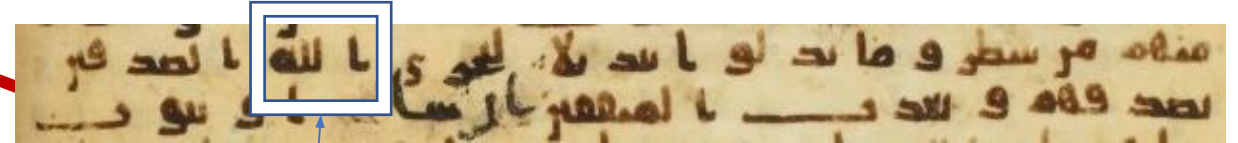 منهم من ينتظر و ما بدلوا تبديلا ليجزي الله الصدقين
بصدقهم و يعذب المنفقين ان شا او يتوب